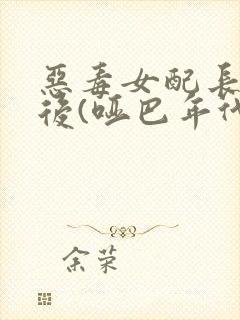 惡毒女配長
後(啞巴年代
余荣